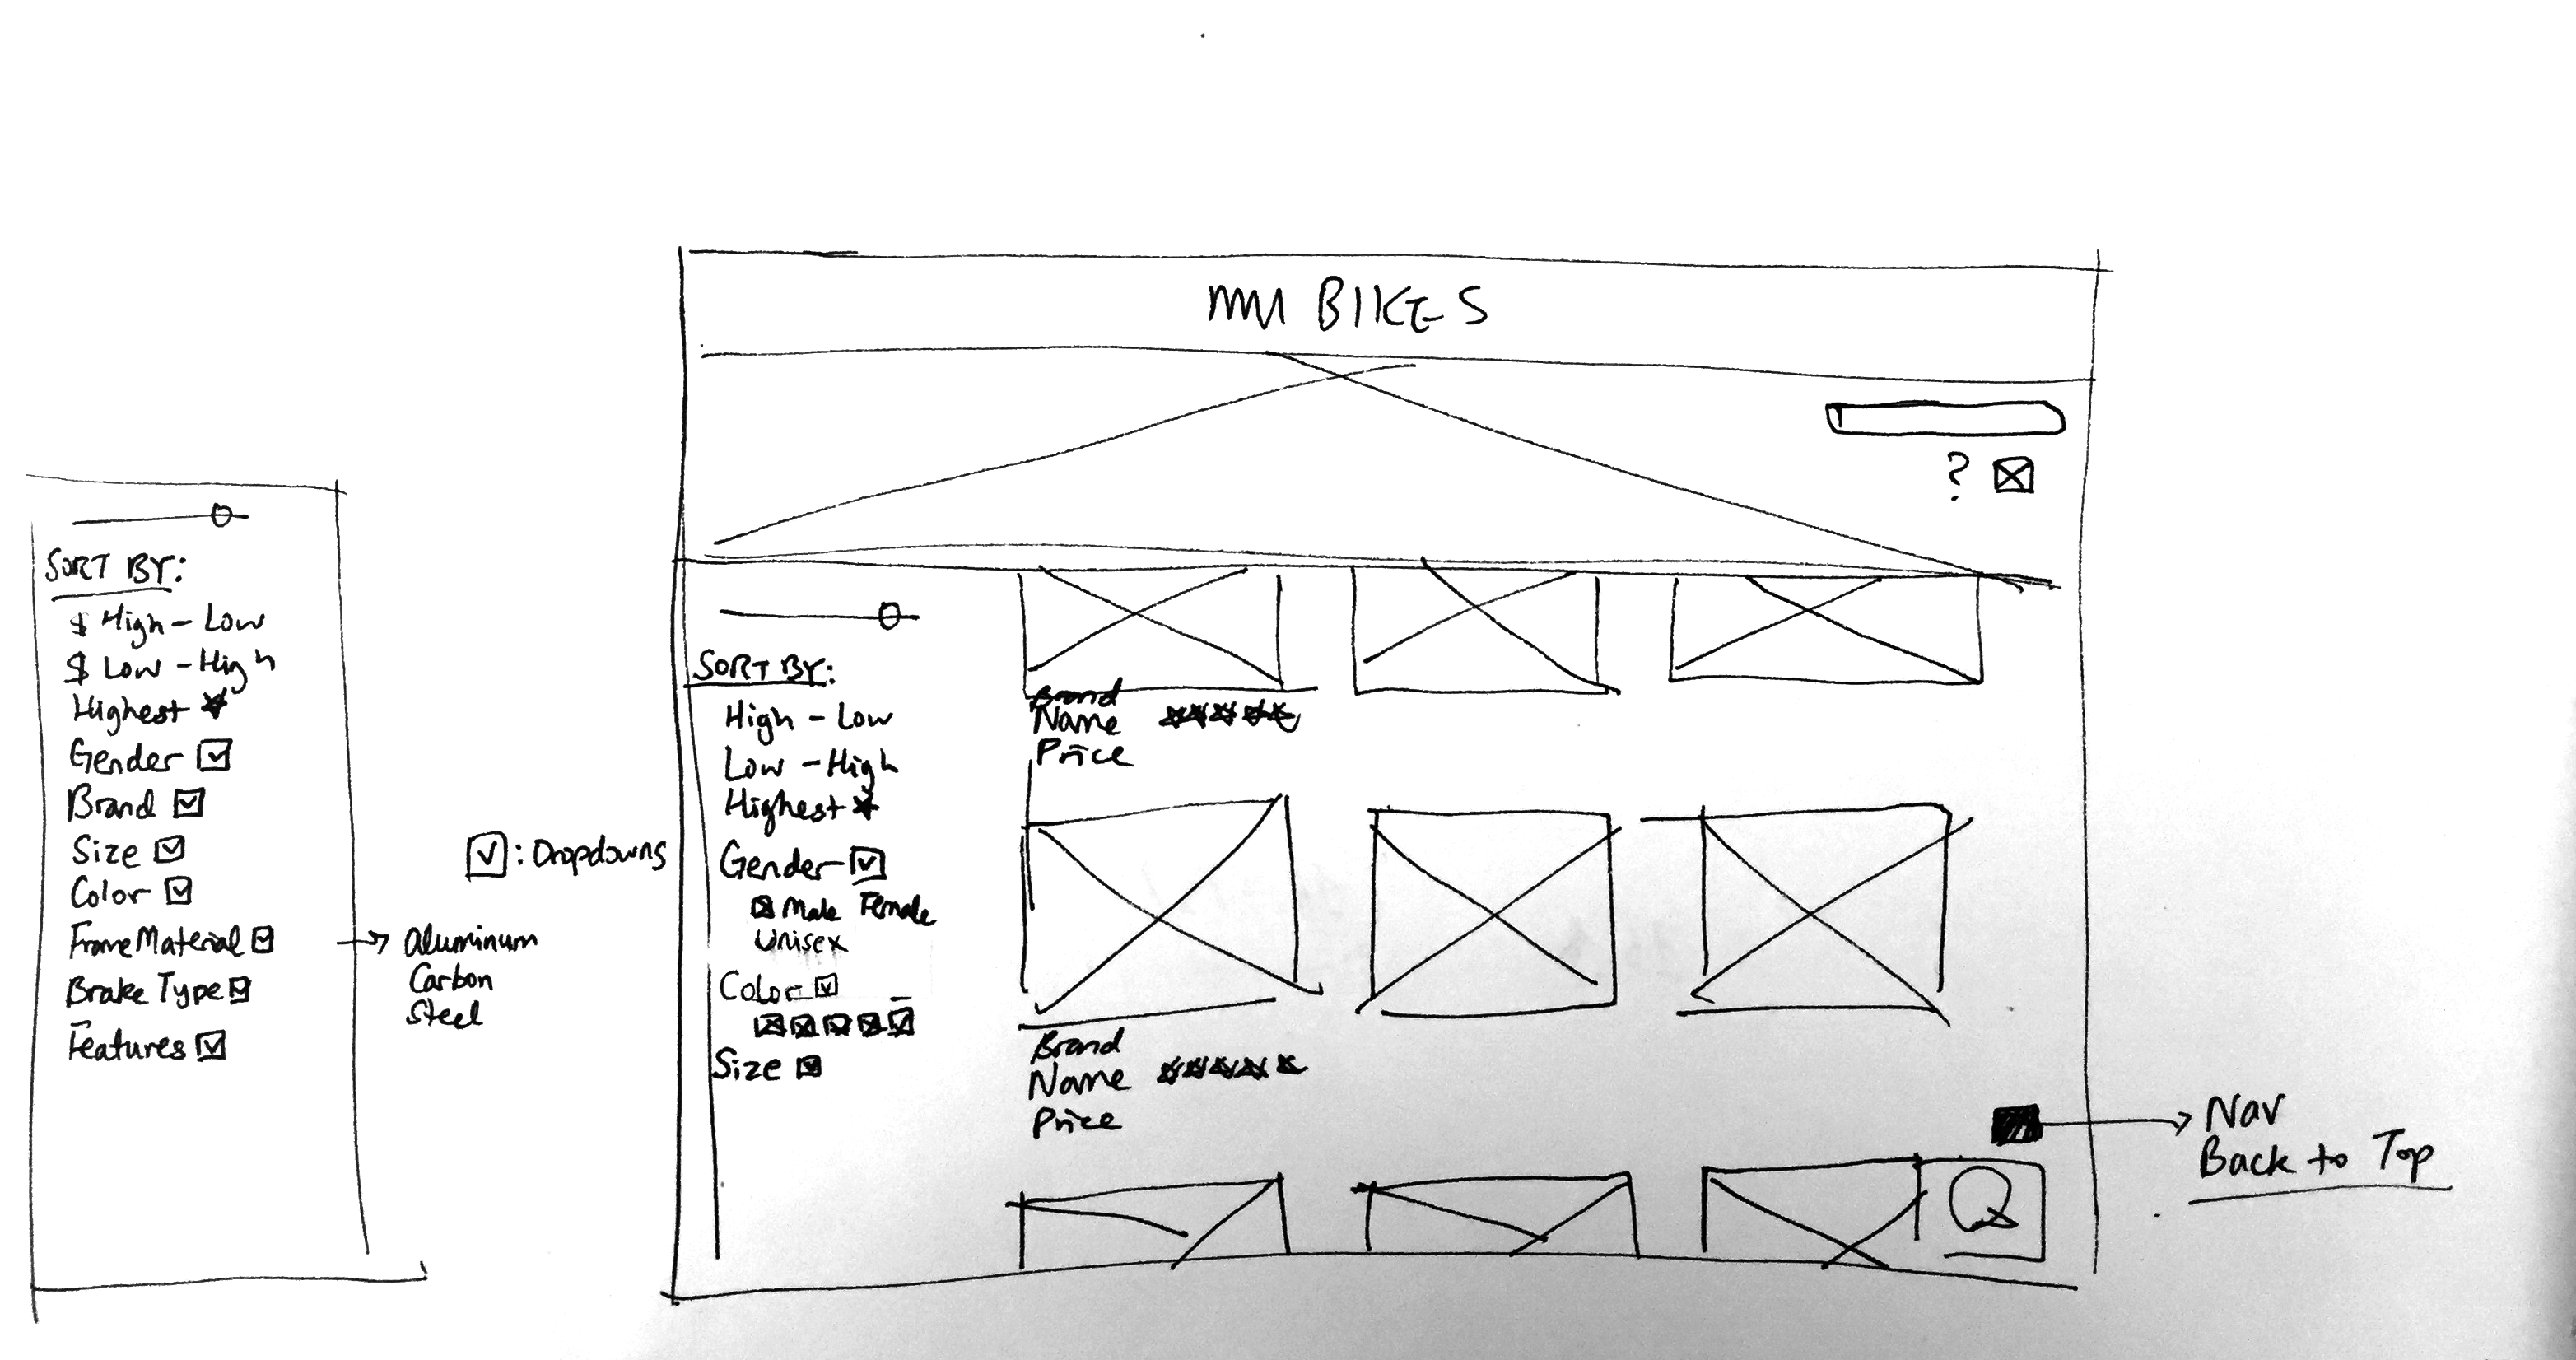 SORT BY:
$ High - Low
$ Low - High
Highest
Gender
Brand
Size
Color
Frame Material
Brake Type
Features
Aluminum
Carbon
Steel
: Dropdowns
BIKES
?
SORT BY:
High - Low
Low - High
Highest
Gender
Male Female
Unisex
Color
Size
Brand
Name
Price
Brand
Name
Price
Nav
Back to Top